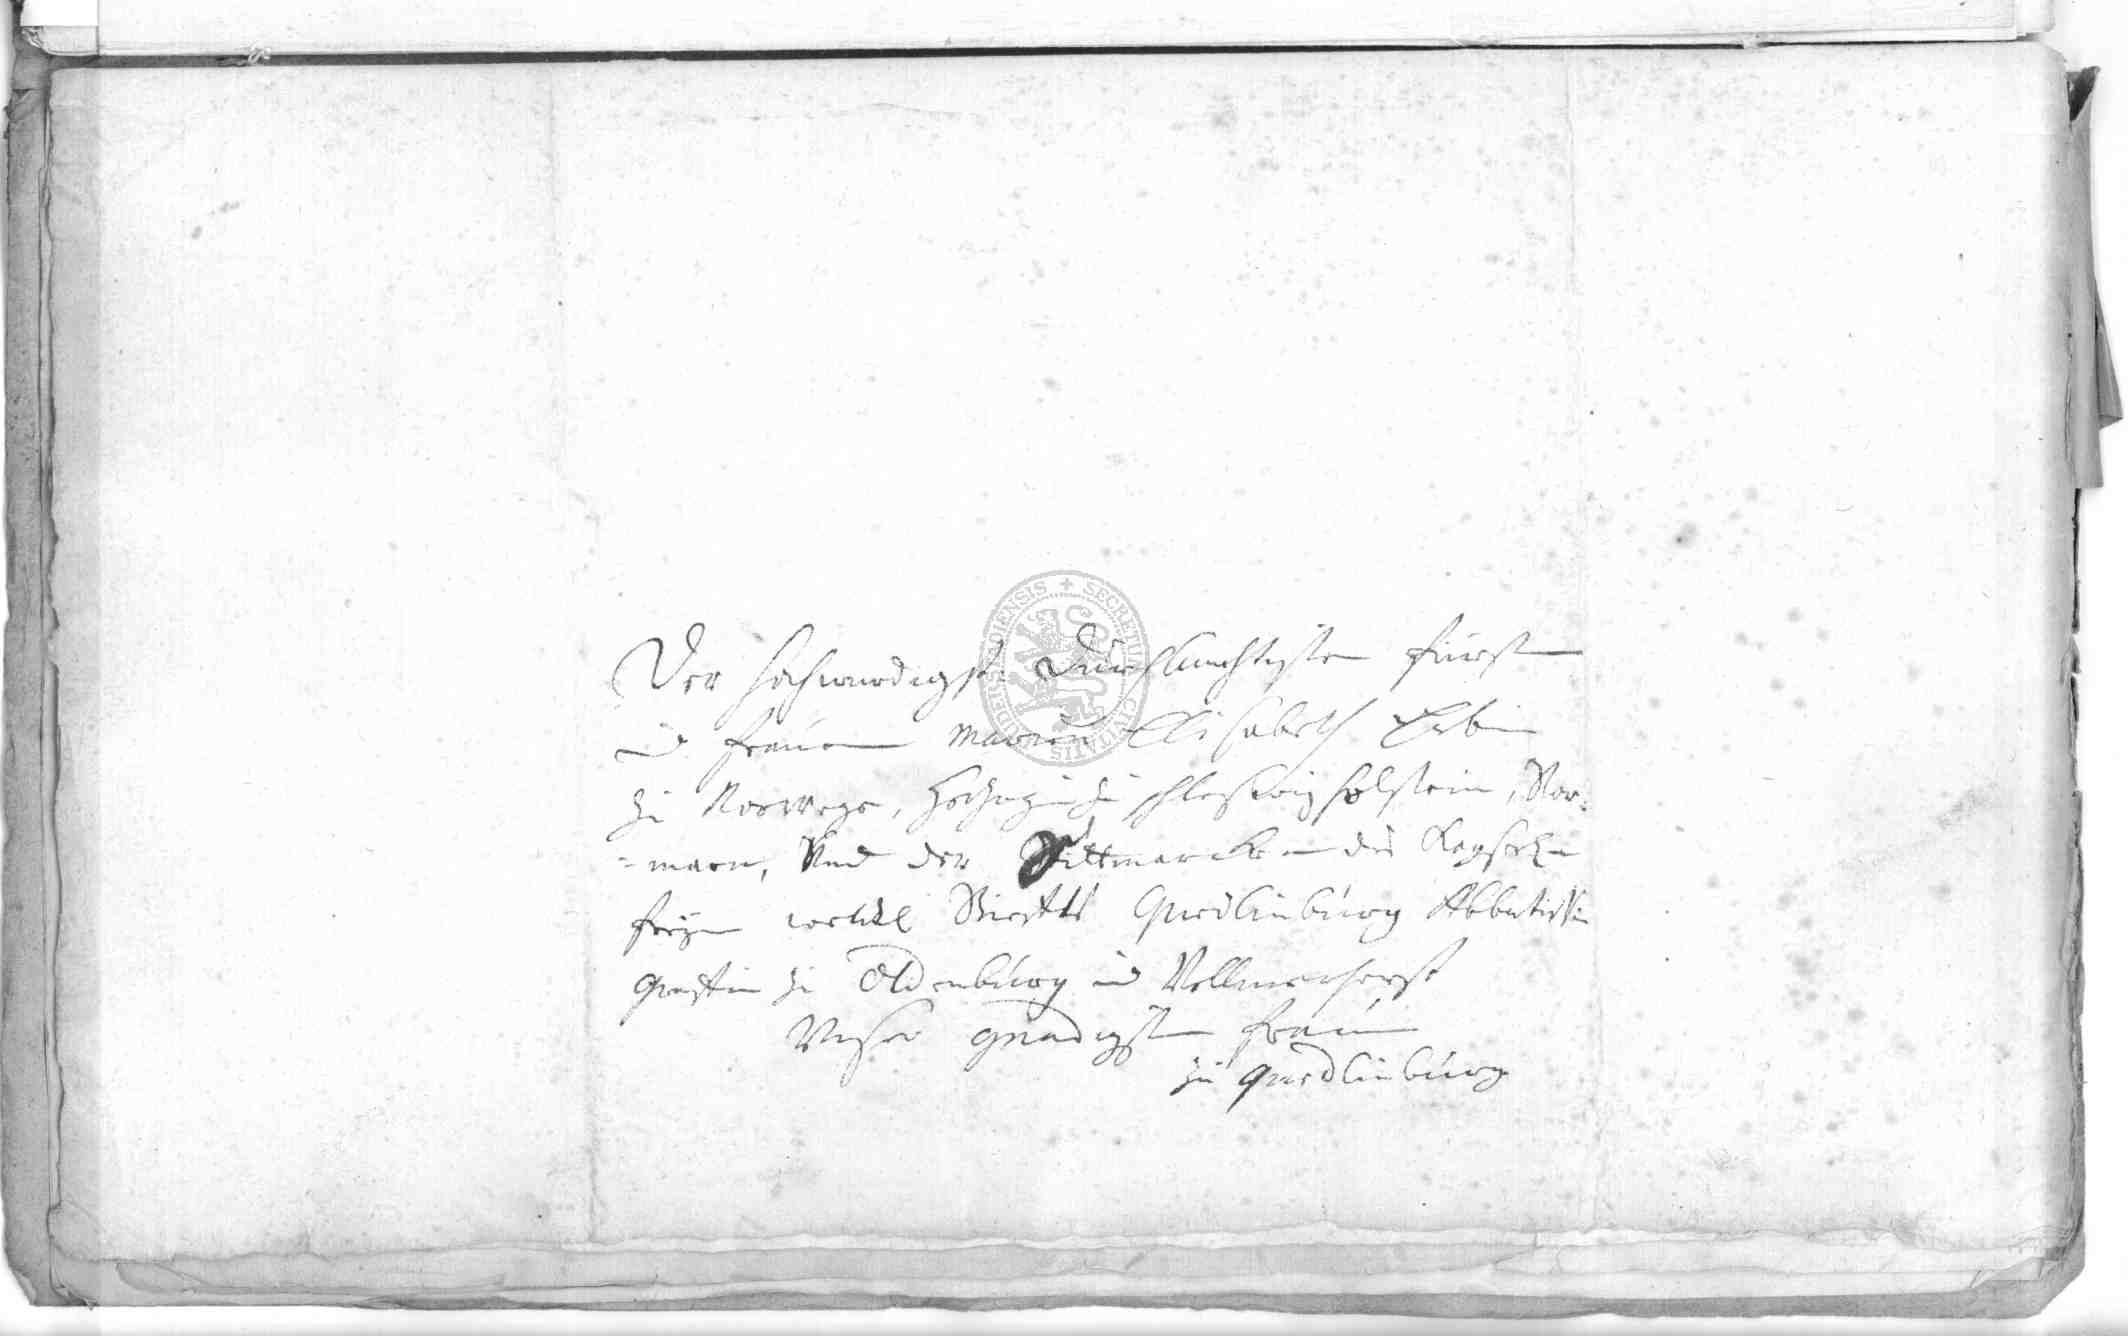 Der hochwurdigste Durchlauchtigsten fürst
und frauen Marien Elisabeth Erbin
zu Norwege, Hertzogin zu schleswig holstein, Stor¬
¬marn, Und der Dittmarcken des Kayserl
freyen weltl Stiefts Quedlinburg Abbatissin
Graffin zu Oldenburg und Dellmenhorst
Unser gnadigsten frauen
zu Quedlinburg
SECRETUM CIVITATIS